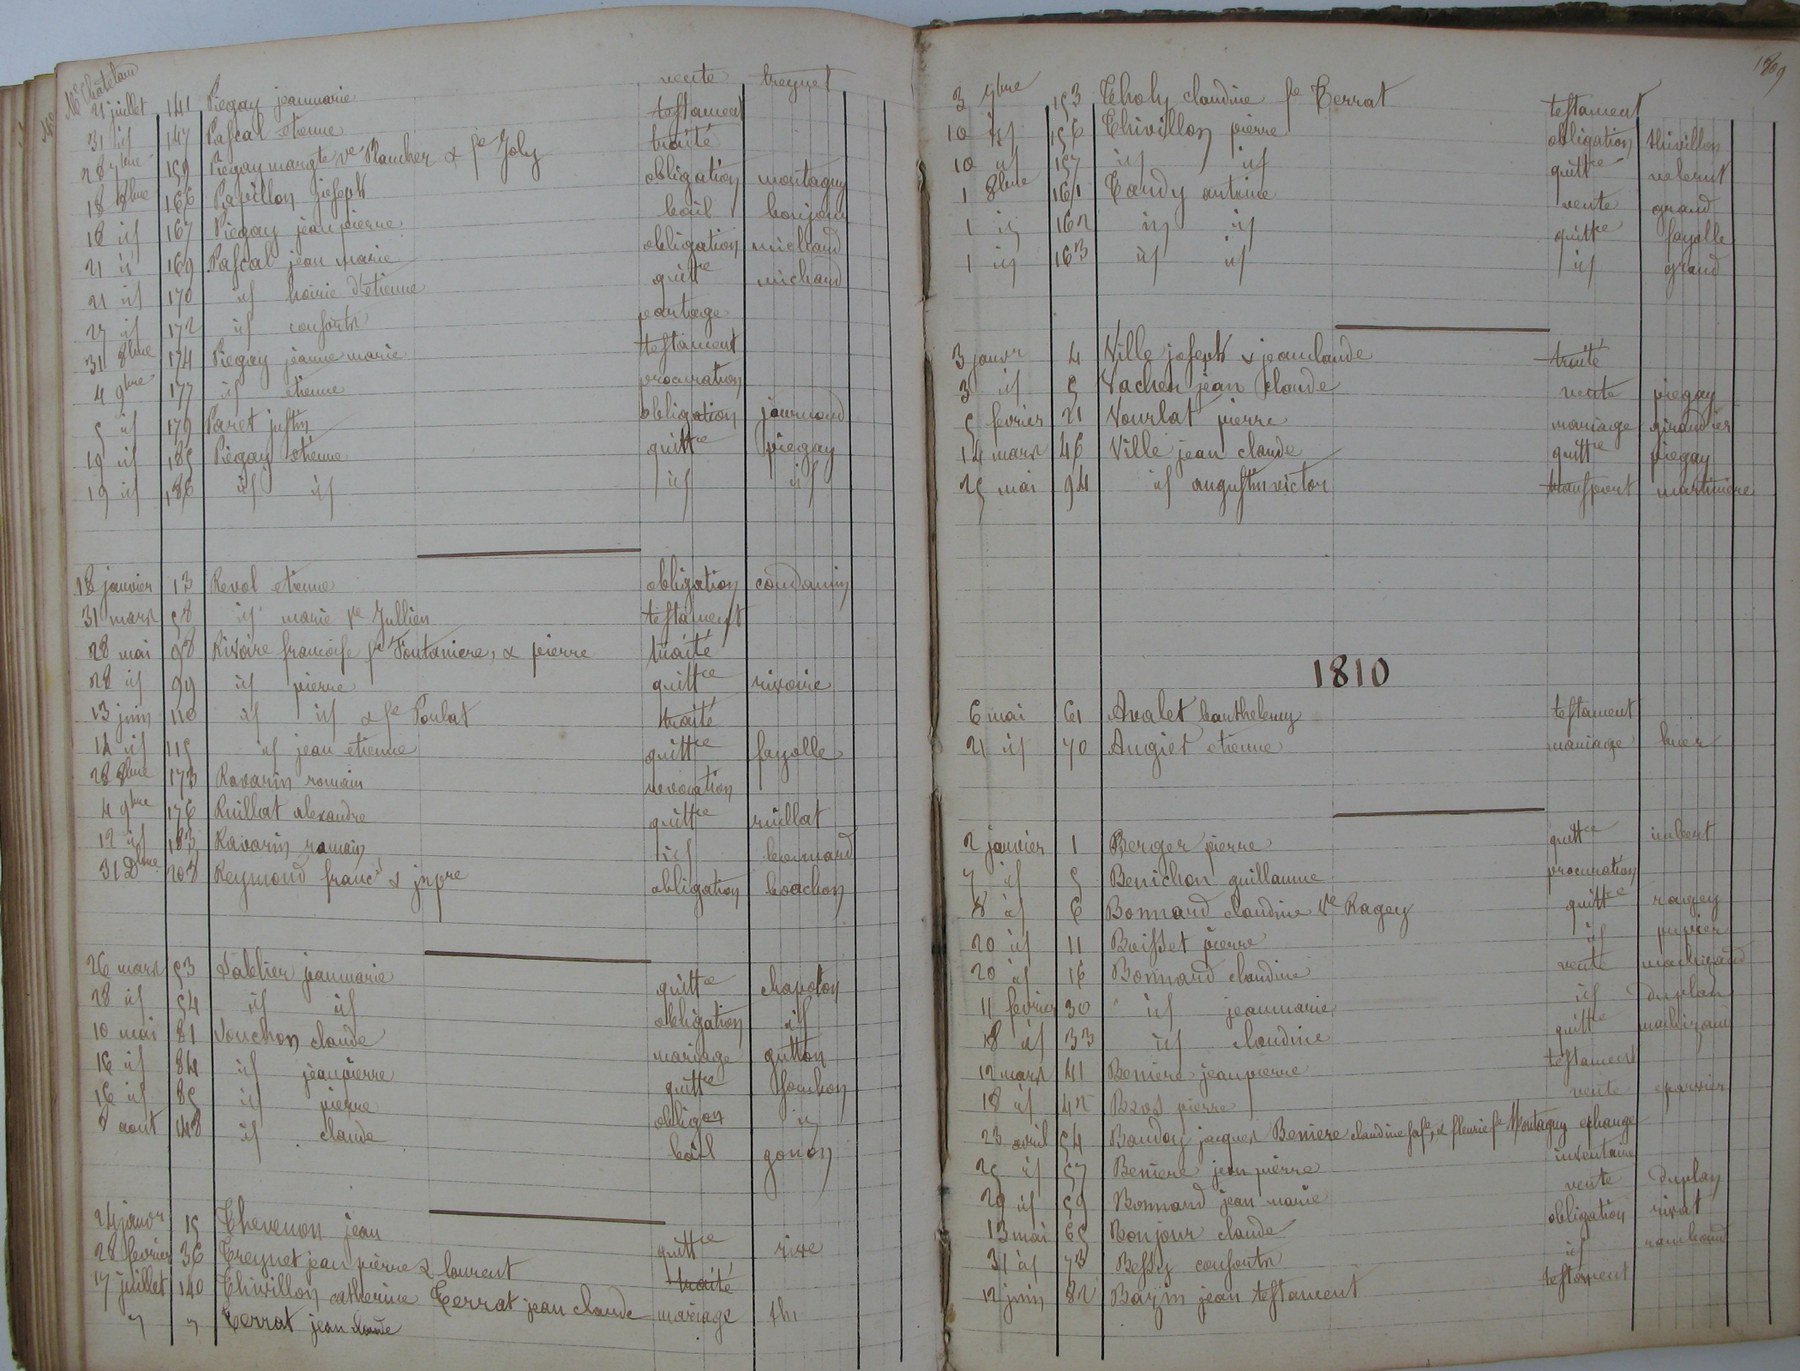 Me Châtelain
21 juillet 141 Piegay jeanmarie vente treynet
31 id 147 Pascal etienne testament
28 7bre 159 Piegay margte ve Plancher & fe Joly traité
18 8bre 166 Papillon joseph obligation montagny
18 id 167 Piegay jean pierre bail bonjour
21 id 169 Pascal jean marie obligation michaud
21 id 170 id hoirie d'etienne quittce michaud
27 id 172 id consorts partage
31 8bre 174 Piegay jeanne marie testament
4 9bre 177 id etienne procuration
5 id 179 Paret justin obligation journoud
19 id 185 Piegay etienne quittce piegay
19 id 186 id id id id
18 janvier 13 Revol etienne obligation coudamin
31 mars 58 id marie ve Jullien testament
28 mai 98 Rivoire francoise fe Fontaniere, & pierre traité
28 id 99 id pierre quittce rivoire
13 juin 110 id id & fe Poulat traité
14 id 115 id jean etienne quittce fayolle
28 8bre 173 Ravarin romain revocation
4 9bre 176 Ruillat alexandre quittce ruillat
12 id 183 Ravarin romain id bonnard
31 Dbre 208 Reymond francs & jnpre obligation bouchon
26 mars 53 Sablier jeanmarie quittce chapoton
28 id 54 id id obligation id
10 mai 81 Souchon claude mariage gutton
16 id 84 id jeanpierre quittce souchon
16 id 85 id pierre obligon id
8 aout 148 id claude bail gonon
24 janvr 15 Thevenon jean quittce rive
28 fevrier 36 Treynet jean pierre & laurent traité
17 juillet 140 Thivillon catherine Terrat jean claude mariage thi
" " Terrat jean claude
1809
3 7bre 153 Tholy claudine fe Terrat testament
10 id 156 Thivillon pierre obligation thivillon
10 id 157 id id quittce velerut
1 8bre 161 Tardy antoine vente grand
1 id 162 id id quittce fayolle
1 id 163 id id id grand
3 janvr 4 Ville joseph & jeanclaude traité
3 id 5 Vachen jean claude vente piegay
5 fevrier 21 Vourlat pierre mariage giraudier
14 mars 46 Ville jean claude quittce piegay
25 mai 94 id augustin victor transport martiniere
1810
6 mai 61 Avalet barthelemy testament
21 id 70 Augier etienne mariage
2 janvier 1 Berger pierre quittce imbert
7 id 5 Benichon guillaume procuration
8 id 6 Bonnard claudine Ve Ragey quittce ragey
20 id 11 Boisset pierre id pupier
20 id 16 Bonnard claudine vente mathizand
11 fevrier 30 id jeanmarie id duplan
18 id 33 id claudine quittce mathizand
12 mars 41 Beniere jeanpierre testament
18 id 42 Bros pierre vente eparvier
23 avril 54 Baudoy jacques Beniere claudine sa fe, & fleurie fe Montagny echange
25 id 57 Beniere jeanpierre inventaire
29 id 59 Bonnard jean marie vente duplan
13 mai 65 Bonjour claude obligation rivat
31 id 73 Bessy consorts id rambaud
12 juin 82 Bazin jean testament testament